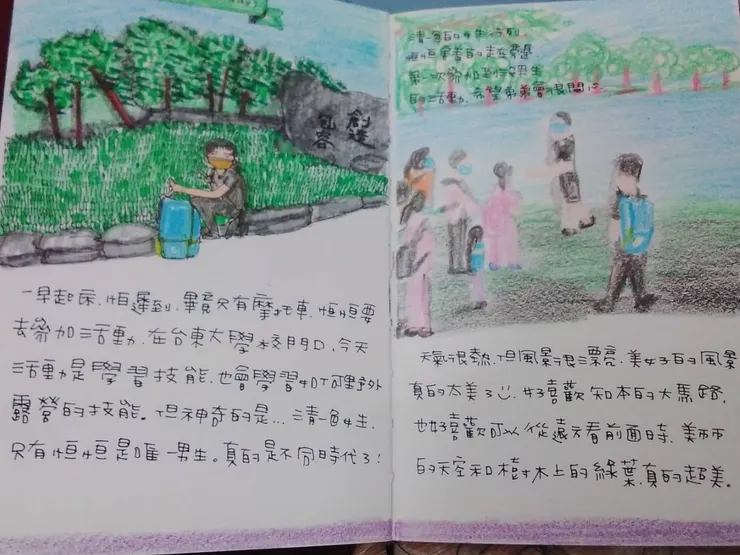 創造
包容
一早起床.怕遲到.畢竟只有摩托車.恒恒要
去參加活動.在台東大學校門口.今天
活動是學習技能.也會學習如何野外
露營的技能。但神奇的是...清一色女生.
只有恒恒是唯一男生。真的是不同時代了!
清一色的女生行列
恒恒害羞的走在旁邊
第一次參加到沒男生
的活動.希望弟弟會很開心
天氣很熱.但風景很漂亮.美好的風景
真的太美了☺.好喜歡知本的大馬路.
也好喜歡可以從遠方看前面時.美丽
的天空和樹木上的綠葉.真的超美。